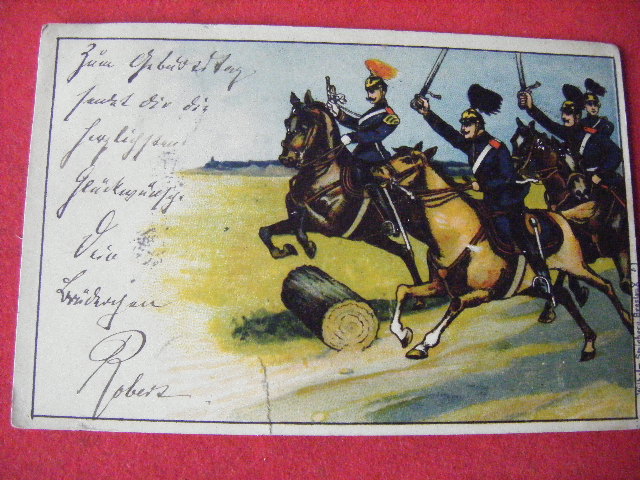 Zum Geburtstag
sendet dir die
herzlichsten
Glückwünsche
Dein
Brüderchen
Robert